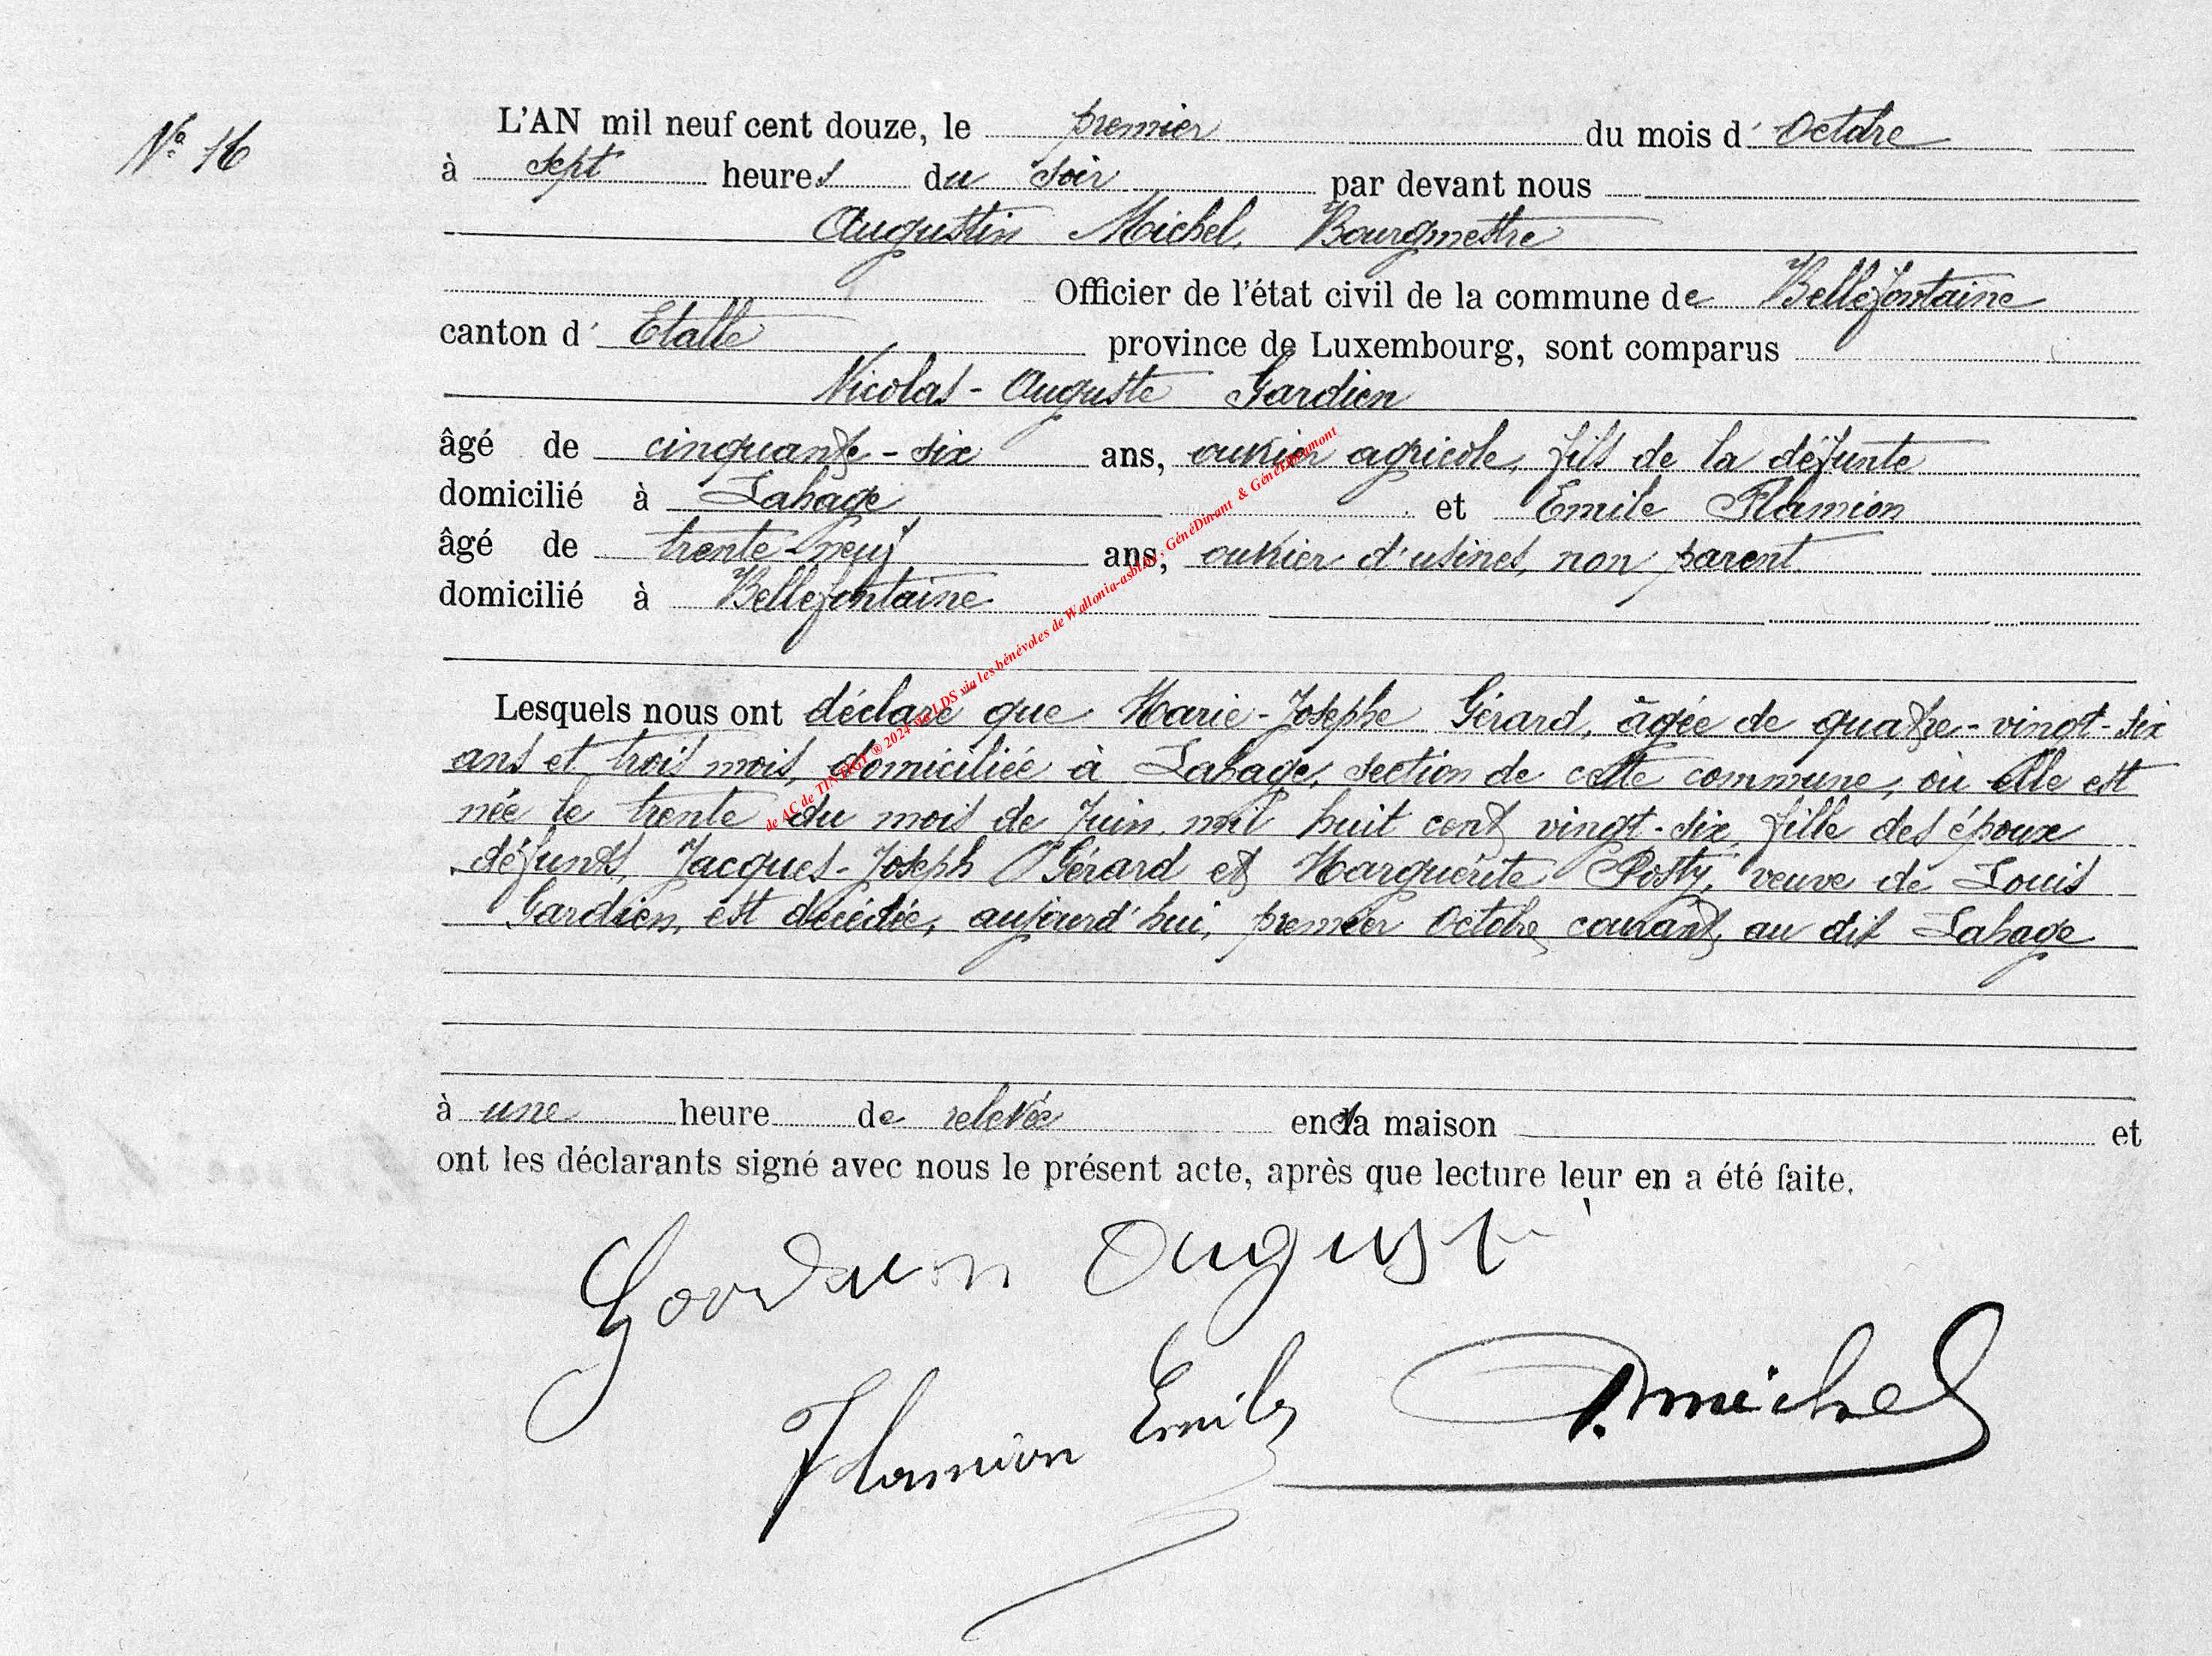 Nº 16
L'AN mil neuf cent douze, le premier du mois d' Octobre
à sept heures du soir par devant nous
Augustin Michel, Bourgmestre
Officier de l'état civil de la commune de Bellefontaine
canton d' Etalle province de Luxembourg, sont comparus
Nicolas-Auguste Gardien
âgé de cinquante-six ans, ouvrier agricole, fils de la défunte
domicilié à Lahage et Emile Flamion
âgé de trente-neuf ans, ouvrier d'usines, non parent
domicilié à Bellefontaine
Lesquels nous ont déclaré que Marie-Josephe Gérard, âgée de quatre-vingt-six
ans et trois mois, domiciliée à Lahage, section de cette commune, où elle est
née le trente du mois de Juin mil huit cent vingt-six, fille des époux
défunts, Jacques-Joseph Gérard et Marguerite Posty, veuve de Louis
Gardien, est décédée, aujourd'hui, premier Octobre courant, au dit Lahage
à une heure de relevée en sa maison et
ont les déclarants signé avec nous le présent acte, après que lecture leur en a été faite.
Gardien Auguste
Flamion Emile A. Michel
de AC de TINTIGNY ® 2024 via LDS via les bénévoles de Wallonia-asbl.be, GénéDurant & GénéLibramont